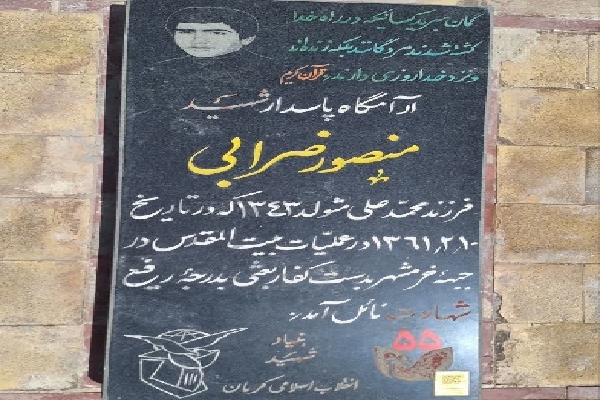 گمان مبرید کسانیکه در راه خدا
کشته شدند مردگانند بلکه زنده‌اند
و نزد خدا روزی دارند. قرآن کریم
آرامگاه پاسدار شهید
منصور ضرابی
فرزند محمد علی متولد ۱۳۴۳ که در تاریخ
۱۳۶۱٫۲٫۱۰ در عملیات بیت المقدس در
جبهه خرمشهر بدست کفار بعثی بدرجه رفیع
شهادت نائل آمد.
۵۵
بنیاد
شهید
انقلاب اسلامی کرمان